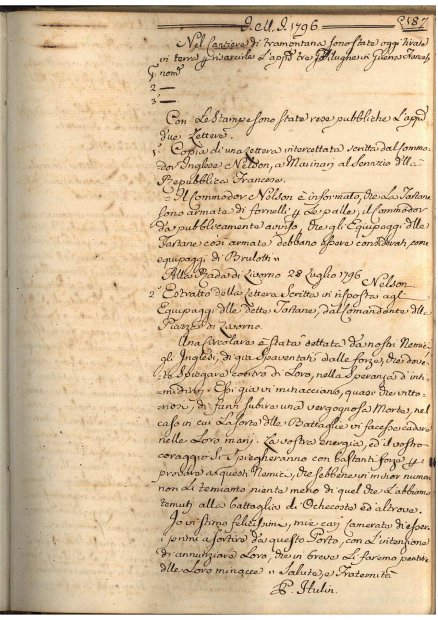 I.M.I. 1796
187
Nel Cantiere di tramontana sono state oggi tirate
in terra
tre Felughe in Guerra Francesi
2 —
3 —
Con Le Stampe sono state rese pubbliche L'app.e
due Lettere.
1a Copia di una Lettera intercettata scritta dal Commo-
dor Inglese Nelson, a Marinari al Servizio dlla
Repubblica Francese.
= Il Commodor Nelson è informato, che La Tartane
sono armate di fornelli p Le palle, il Commodor
dà pubblicamente avviso, che gli Equipaggi dlle
Tartane così armate debbano essere considerati come
equipaggi di Brulotti "
Alla Rada di Livorno 28 Luglio 1796
Nelson
2a Estratto della Lettera Scritta in risposta agl'
Equipaggi dlle dette Tartane, dal Comandante dlla
Piazza di Livorno.
Una Circolare è stata dettata da nostri Nemici
gli Inglesi, di già spaventati dalle forze, che dove-
te Spiegare contro di Loro, nella Speranza d'inti-
midirvi. Essi già vi minacciano, quasi che vitto-
riosi, di farvi subire una vergognosa Morte, nel
caso in cui La sorte dlle Battaglie vi facesse cadere
nelle Loro mani. La vostra energia, ed il vostro
coraggio si spiegheranno con bastanti forze p
provare a questi Nemici, che sebbene in minor numero
non Li temiamo niente meno di quel che Li abbiamo
temuti alla battaglia di
ed altrove.
Io vi stimo felicissimi, miei cari Camerati d'esser
i primi a sortire da questo Porto, con L'intenzione
di annunziare Loro, che in breve Li faremo pentire
dlle Loro minacce " Salute, e Fraternità
Hulin.